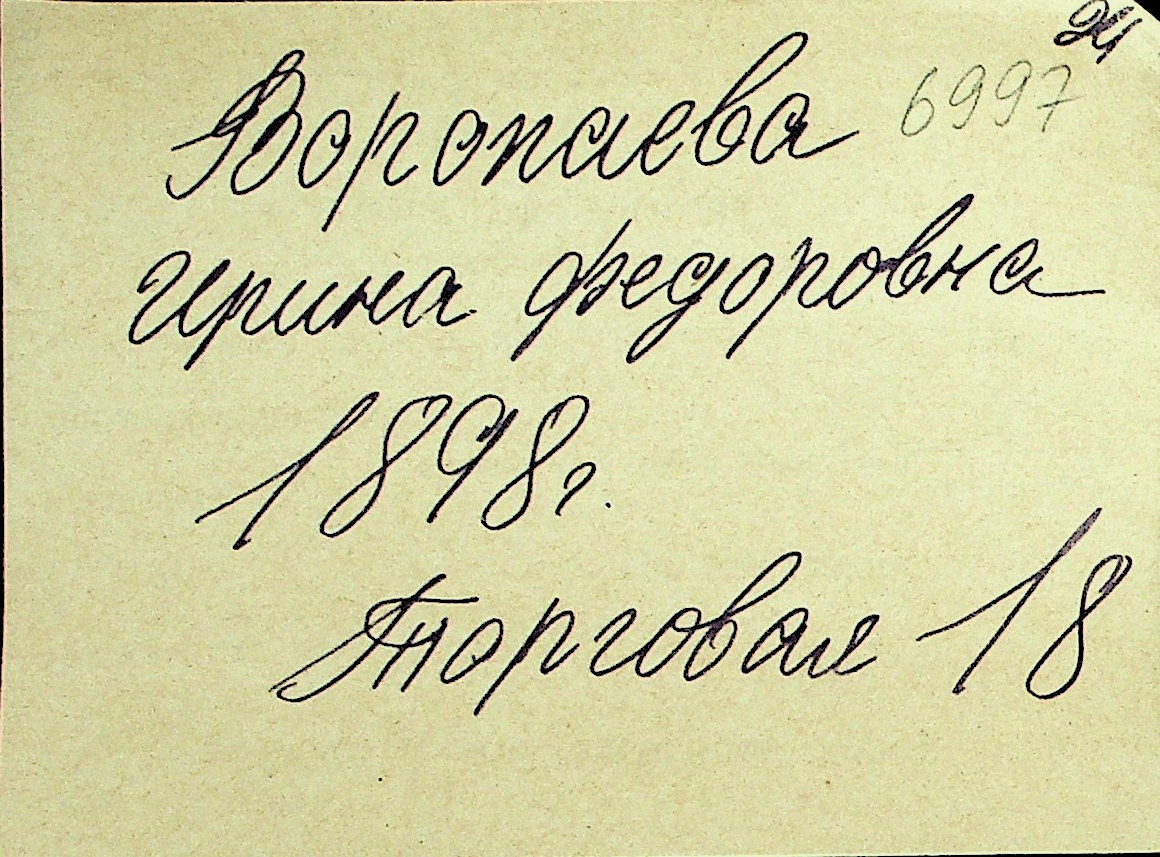 24
Воропаева 6997
Ирина Федоровна
1898г.
Торговая 18